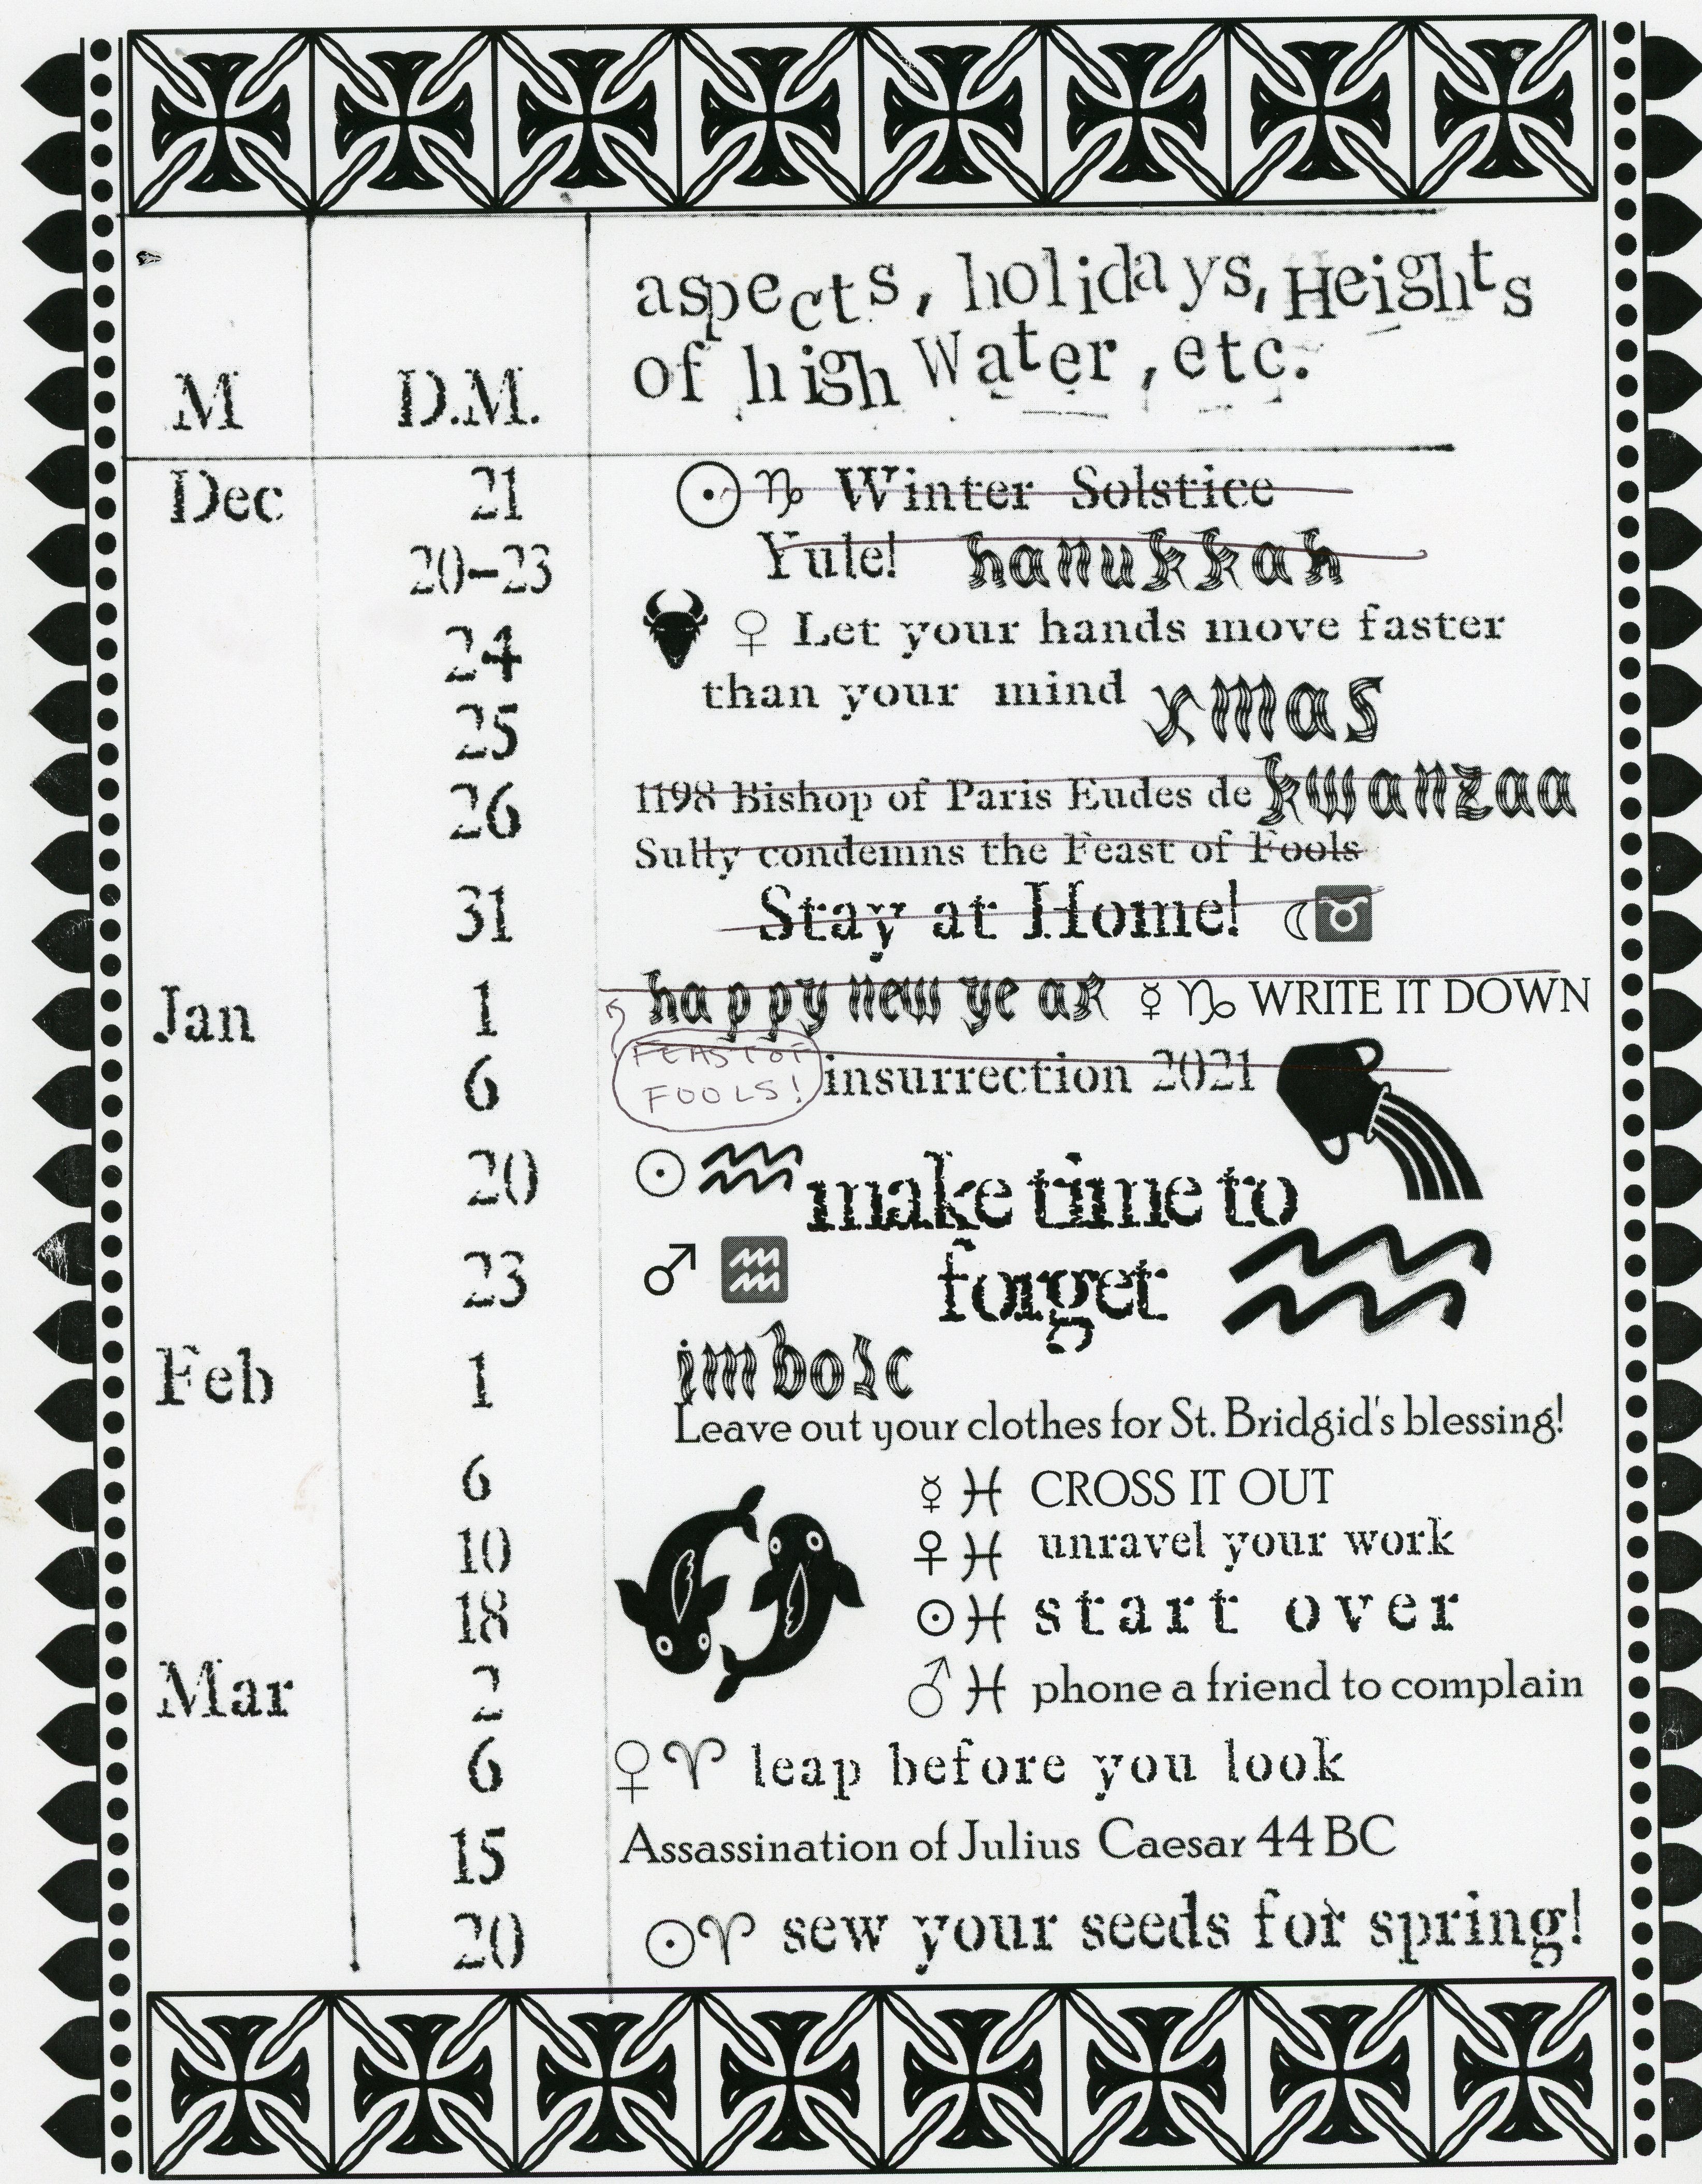 aspects, holidays, Heights
of high Water, etc.
M D.M.
Dec 21 ☉ ♑ Winter Solstice
20-23 Yule! hanukkah
24 ♀ Let your hands move faster
than your mind xmas
25
26 1198 Bishop of Paris Eudes de kwanzaa
Sully condemns the Feast of Fools
31 Stay at Home! ☾ ♉
Jan 1 happy new year ☿ ♑ WRITE IT DOWN
FEAST OF
FOOLS!
6 insurrection 2021
20 ☉ ♒ make time to
forget
23 ♂ ♒
Feb 1 imbolc
Leave out your clothes for St. Bridgid's blessing!
6 ☿ ♓ CROSS IT OUT
10 ♀ ♓ unravel your work
18 ☉ ♓ start over
Mar 2 ♂ ♓ phone a friend to complain
6 ♀ ♈ leap before you look
15 Assassination of Julius Caesar 44 BC
20 ☉ ♈ sew your seeds for spring!